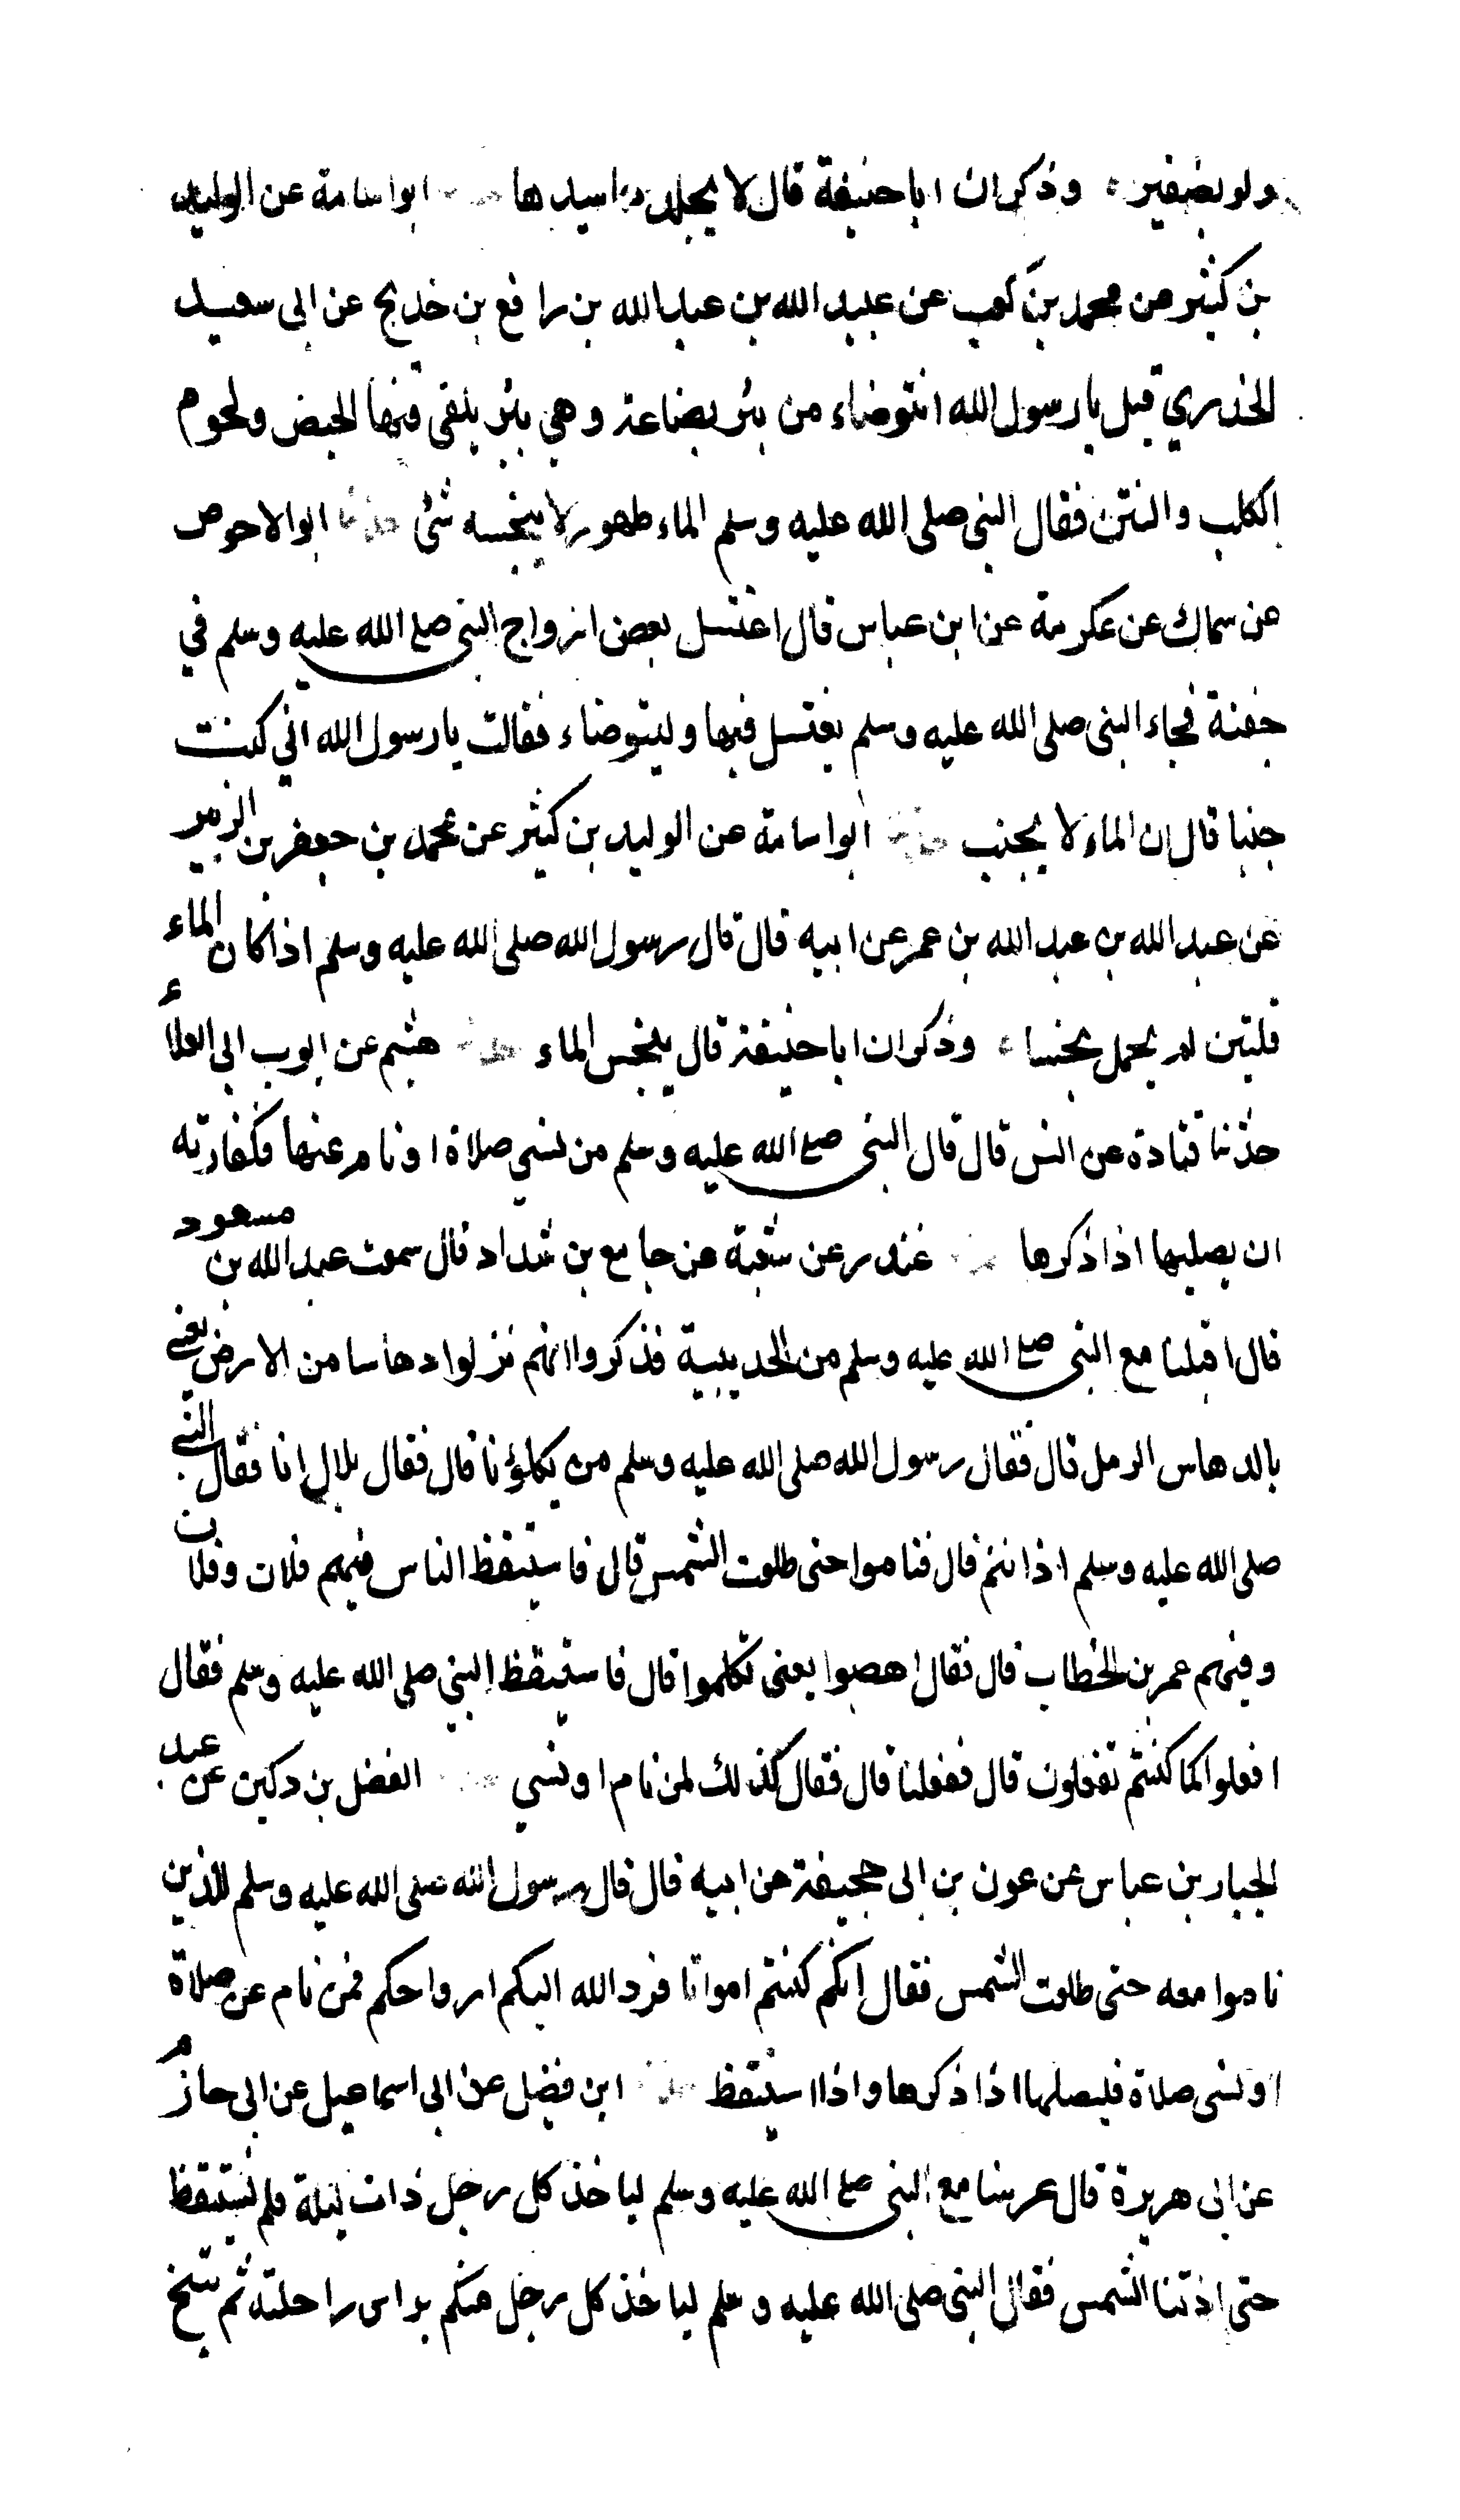 ولو بضفير وذكر ان ابا حنيفة قال لا يجلدها سيدها ابو اسامة عن الوليد
بن كثير عن محمد بن كعب عن عبيد الله بن عبد الله بن رافع بن خديج عن ابي سعيد
الخدري قيل يا رسول الله انتوضاء من بئر بضاعة وهي بئر يلقى فيها الحيض ولحوم
الكلب والنتن فقال النبي صلى الله عليه وسلم الماء طهور لا ينجسه شئ حدثنا ابو الاحوص
عن سماك عن عكرمة عن ابن عباس قال اغتسل بعض ازواج النبي صلى الله عليه وسلم في
جفنة فجاء النبي صلى الله عليه وسلم يغتسل فيها وليتوضاء فقالت يا رسول الله اني كنت
جنبا قال ان الماء لا يجنب حدثنا ابو اسامة عن الوليد بن كثير عن محمد بن جعفر بن الزبير
عن عبد الله بن عبد الله بن عمر عن ابيه قال قال رسول الله صلى الله عليه وسلم اذا كان الماء
قلتين لم يحمل نجسا وذكر ان ابا حنيفة قال ينجس الماء حدثنا هشيم عن ايوب ابي العلاء
حدثنا قتادة عن انس قال قال النبي صلى الله عليه وسلم من نسي صلاة او نام عنها فكفارته
ان يصليها اذا ذكرها غندر عن شعبة عن جامع بن شداد قال سمعت عبد الله بن مسعود
قال اقبلنا مع النبي صلى الله عليه وسلم من الحديبية فذكروا انهم نزلوا دهاسا من الارض يعني
بالدهاس الرمل قال فقال رسول الله صلى الله عليه وسلم من يكلؤنا قال فقال بلال انا فقال النبي
صلى الله عليه وسلم اذا ننم قال فناموا حتى طلعت الشمس قال فاستيقظ الناس فيهم فلان وفلان
وفيهم عمر بن الخطاب قال فقال اهصبوا يعني تكلموا قال فاستيقظ النبي صلى الله عليه وسلم فقال
افعلوا كما كنتم تفعلون قال ففعلنا قال فقال كذلك لمن نام او نسي الفضل بن دكين عن عبد
الجبار بن عباس عن عون بن ابي جحيفة عن ابيه قال قال رسول الله صلى الله عليه وسلم للذين
ناموا معه حتى طلعت الشمس فقال انكم كنتم امواتا فرد الله اليكم ارواحكم فمن نام عن صلاة
او نسى صلاة فليصلها اذا ذكرها واذا استيقظ حدثنا ابن فضيل عن ابي اسماعيل عن ابي حازم
عن ابي هريرة قال عرسنا مع النبي صلى الله عليه وسلم لياخذ كل رجل ذات ليلة فلم نستيقظ
حتى اذتنا الشمس فقال النبي صلى الله عليه وسلم لياخذ كل رجل منكم براس راحلته ثم يتنح